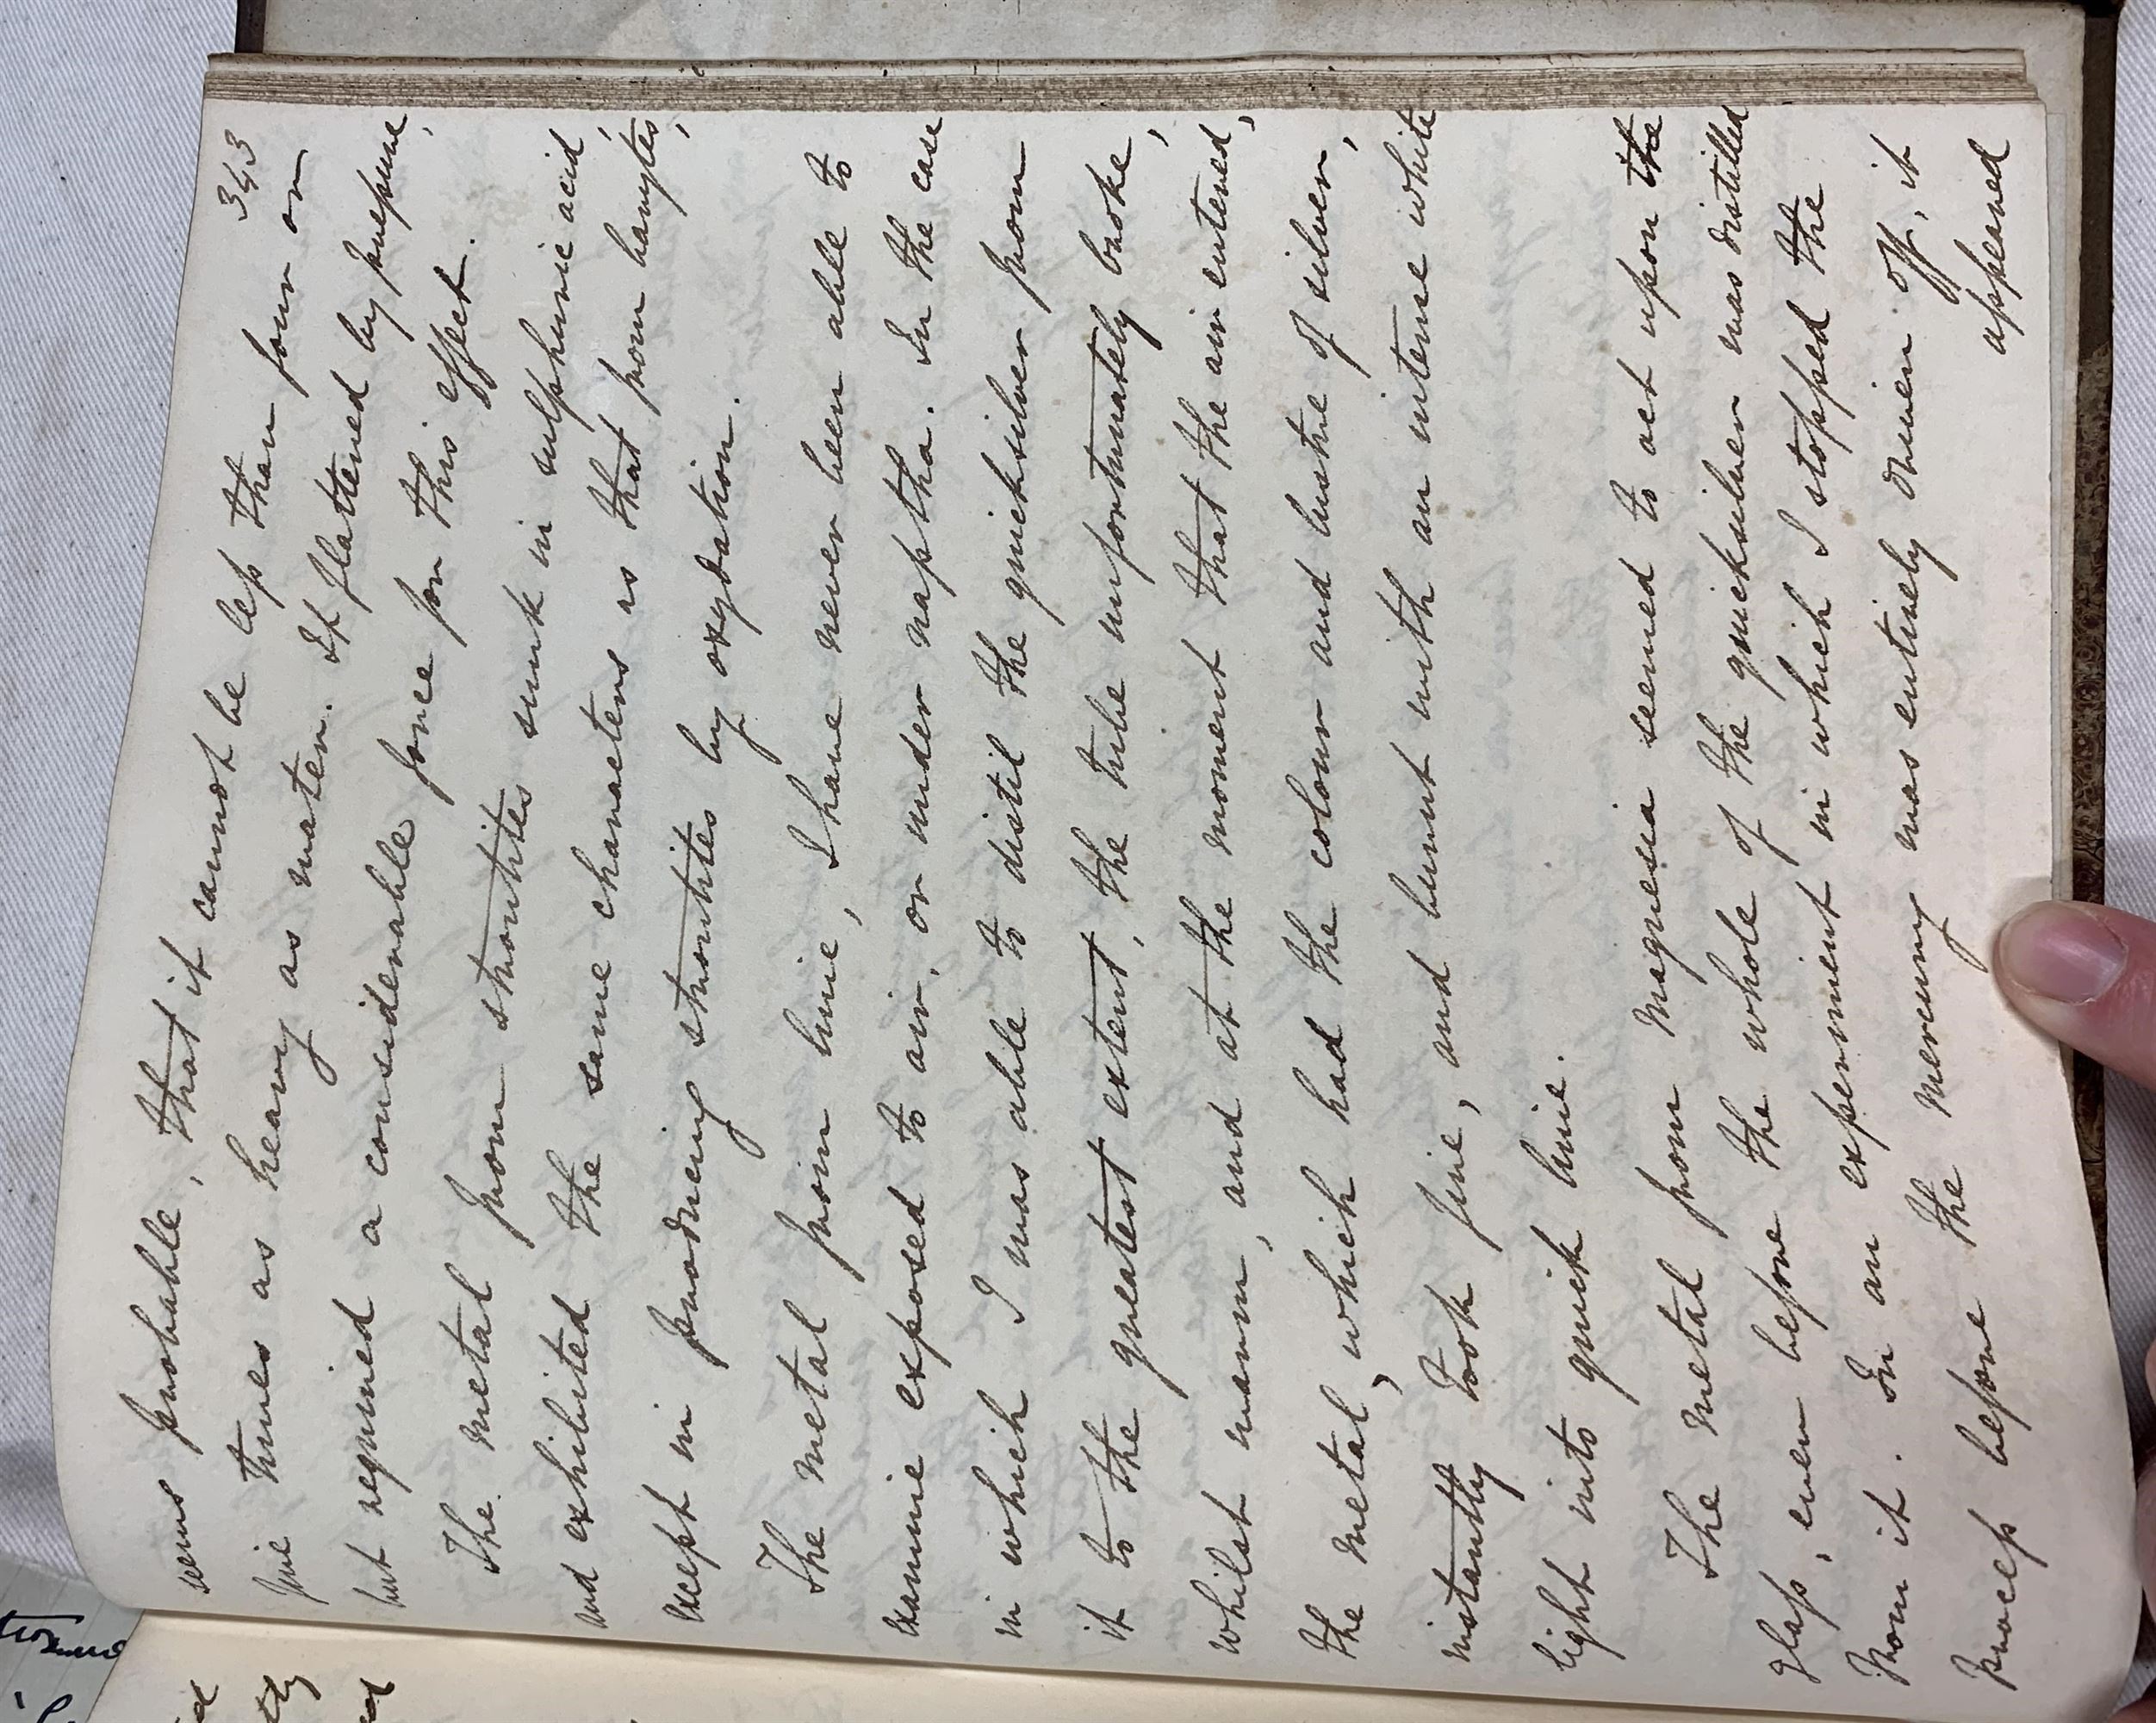 343
seems probable, that it cannot be less than four or
five times as heavy as water. It flattened by pressure,
but required a considerable force for this effect.
The metal from strontites sunk in sulphuric acid,
and exhibited the same characters as that from barytes,
except in producing strontites by oxydation.
The metal from lime, I have never been able to
examine exposed to air, or under naptha. In the case
in which I was able to distil the quicksilver from
it to the greatest extent, the tube unfortunately broke,
whilst warm, and at the moment that the air entered,
the metal, which had the colour and lustre of silver,
instantly took fire, and burnt with an intense white
light into quick lime.
The metal from magnesia seemed to act upon the
glass, even before the whole of the quicksilver was distilled
from it. In an experiment in which I stopped the
process before the mercury was entirely driven off, it
appeared